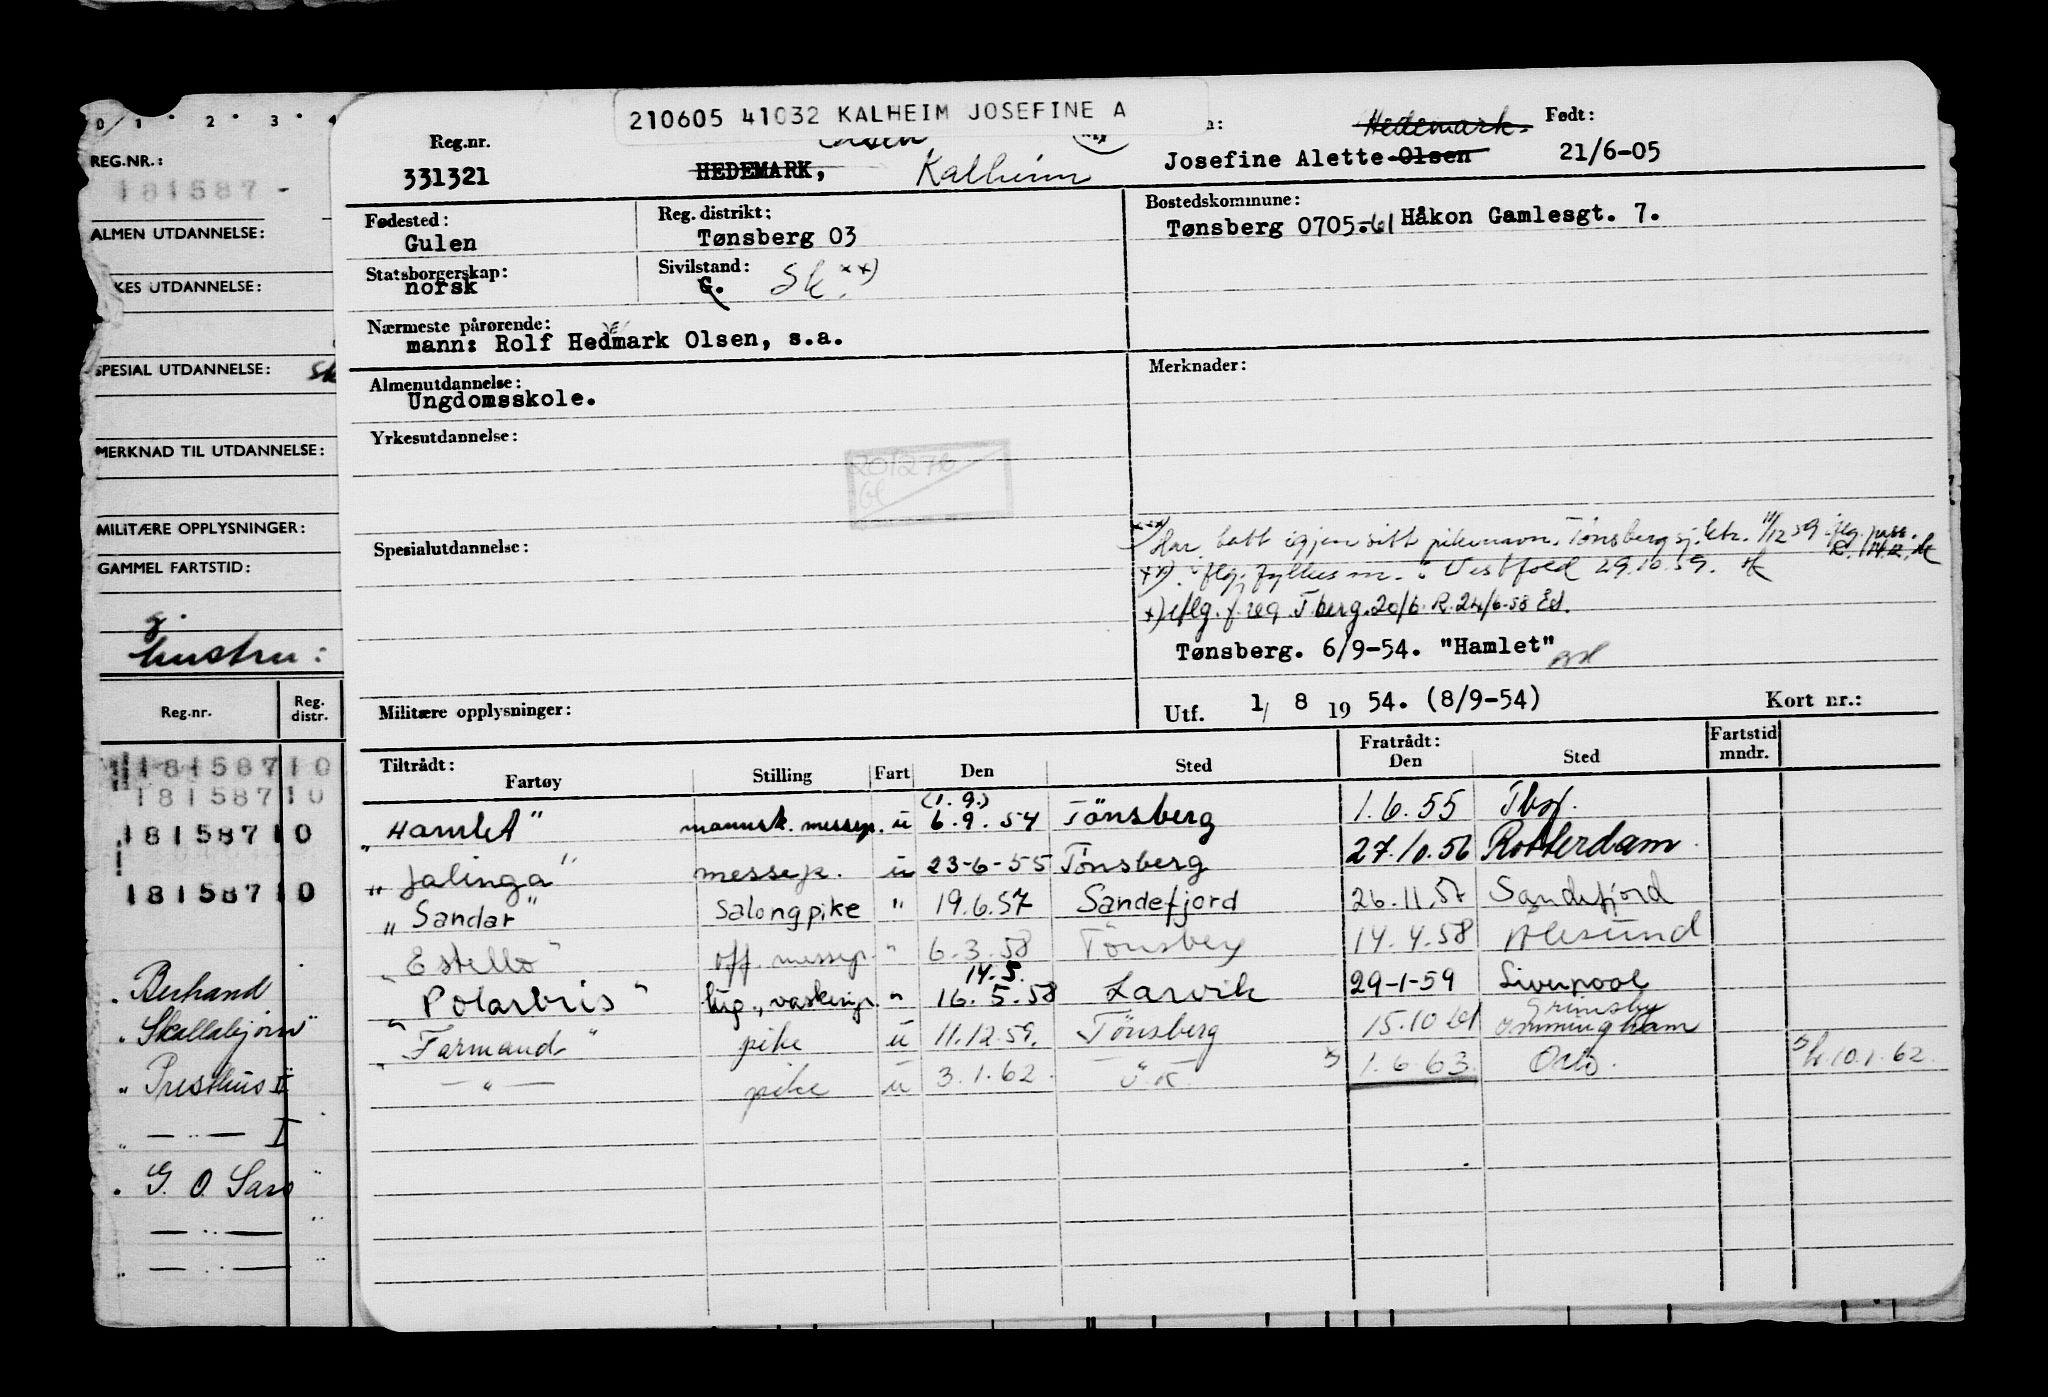 210605 41032 KALHEIM JOSEFINE A
Reg.nr. 331321
HEDEMARK, Kalheim
Hedemark.
Josefine Alette Olsen
Født: 21/6-05
Fødested: Gulen
Reg. distrikt: Tønsberg 03
Bostedskommune: Tønsberg 0705.-61 Håkon Gamlesgt. 7.
Statsborgerskap: norsk
Sivilstand: G. Sk. xx)
Nærmeste pårørende:
mann: Rolf Hedmark Olsen, s.a.
Almenutdannelse:
Ungdomsskole.
Yrkesutdannelse:
Spesialutdannelse:
Militære opplysninger:
Merknader:
xxx) Har tatt igjen sitt pikenavn. Tønsberg 11/12 59 iflg. pass.
xx) iflg. fylkesm. i Vestfold 29.10.59.
x) iflg. f. reg. T.berg. 20/6. R. 24/6-58
Tønsberg. 6/9-54. "Hamlet"
Utf. 1/ 8 1954. (8/9-54)
Kort nr.:
Tiltrådt: Fartøy Stilling Fart Den Sted Fratrådt: Den Sted Fartstid mndr.
(1.9.)
"Hamlet" mannsk. messep. u 6.9.54 Tönsberg 1.6.55 Tbg.
"Jalinga" messep. u 23-6-55 Tönsberg 27.10.56 Rotterdam
"Sandar" Salongpike " 19.6.57 Sandefjord 26.11.57 Sandefjord
"Estello" off. messep. " 6.3.58 Tönsberg 14.4.58 Ålesund
14.5.
"Polarbris" vaskeripike " 16.5.58 Larvik 29-1-59 Liverpool
Grimsby
"Farmand" pike u 11.12.59. Tönsberg 15.10 61 Immingham
— " — pike u 3.1.62. U.K. 1.6.63. Oslo. 10.1.62.
0 1 2 3 4
REG.NR.:
181587 -
ALMEN UTDANNELSE:
KES UTDANNELSE:
SPESIAL UTDANNELSE: sk
MERKNAD TIL UTDANNELSE:
MILITÆRE OPPLYSNINGER:
GAMMEL FARTSTID:
g.
hustru:
Reg.nr. Reg. distr.
181587 10
181587 10
181587 10
181587 10
"Skallabjørn"
"Presthus II
" — " — I
" G. O. Sars "
— " — "
" — " — "